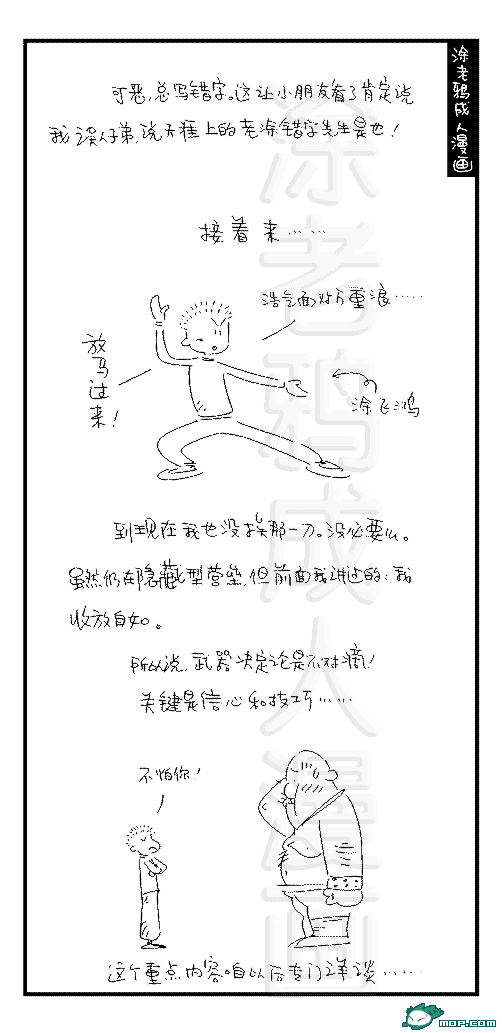 涂老鸦成人漫画
可恶,总写错字。这让小朋友看了肯定说
我误人子弟,说天涯上的老涂错字先生是也!
接着来……
浩气面对万重浪……
放马过来!
涂飞鸿
到现在我也没挨那一刀。没必要么。
虽然仍在隐藏型营垒,但前面我讲过的:我
收放自如。
所以说,武器决定论是不对滴!
关键是信心和技巧……
不怕你!
这个重点内容咱以后专门详谈……
涂老鸦成人漫画
mop.com